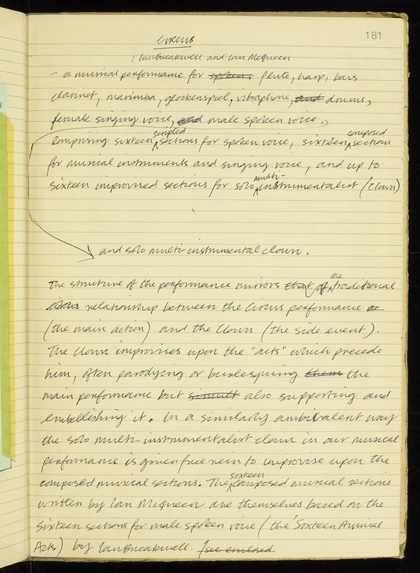 181
CIRCUS
Ian Breakwell and Ian McQueen
- a musical performance for spoken flute, harp, bass
clarinet, marimba, glockenspiel, vibraphone, and drums,
female singing voice, and male spoken voice,
comprising sixteen scripted sections for spoken voice, sixteen composed sections
for musical instruments and singing voice, and up to
sixteen improvised sections for solo multi-instrumentalist (Clown)
and solo multi-instrumental clown.
The structure of the performance mirrors that of the traditional
Circus relationship between the Circus performance
(the main action) and the Clown (the side event).
The Clown improvises upon the "acts" which precede
him, often parodying or burlesquing them the
main performance but also supporting and
embellishing it. In a similarly ambivalent way
the solo multi-instrumentalist clown in our musical
performance is given free rein to improvise upon the
composed musical sections. The sixteen composed musical sections
written by Ian McQueen are themselves based on the
sixteen sections for male spoken voice (the 'Sixteen Animal
Acts) by Ian Breakwell. (see enclosed